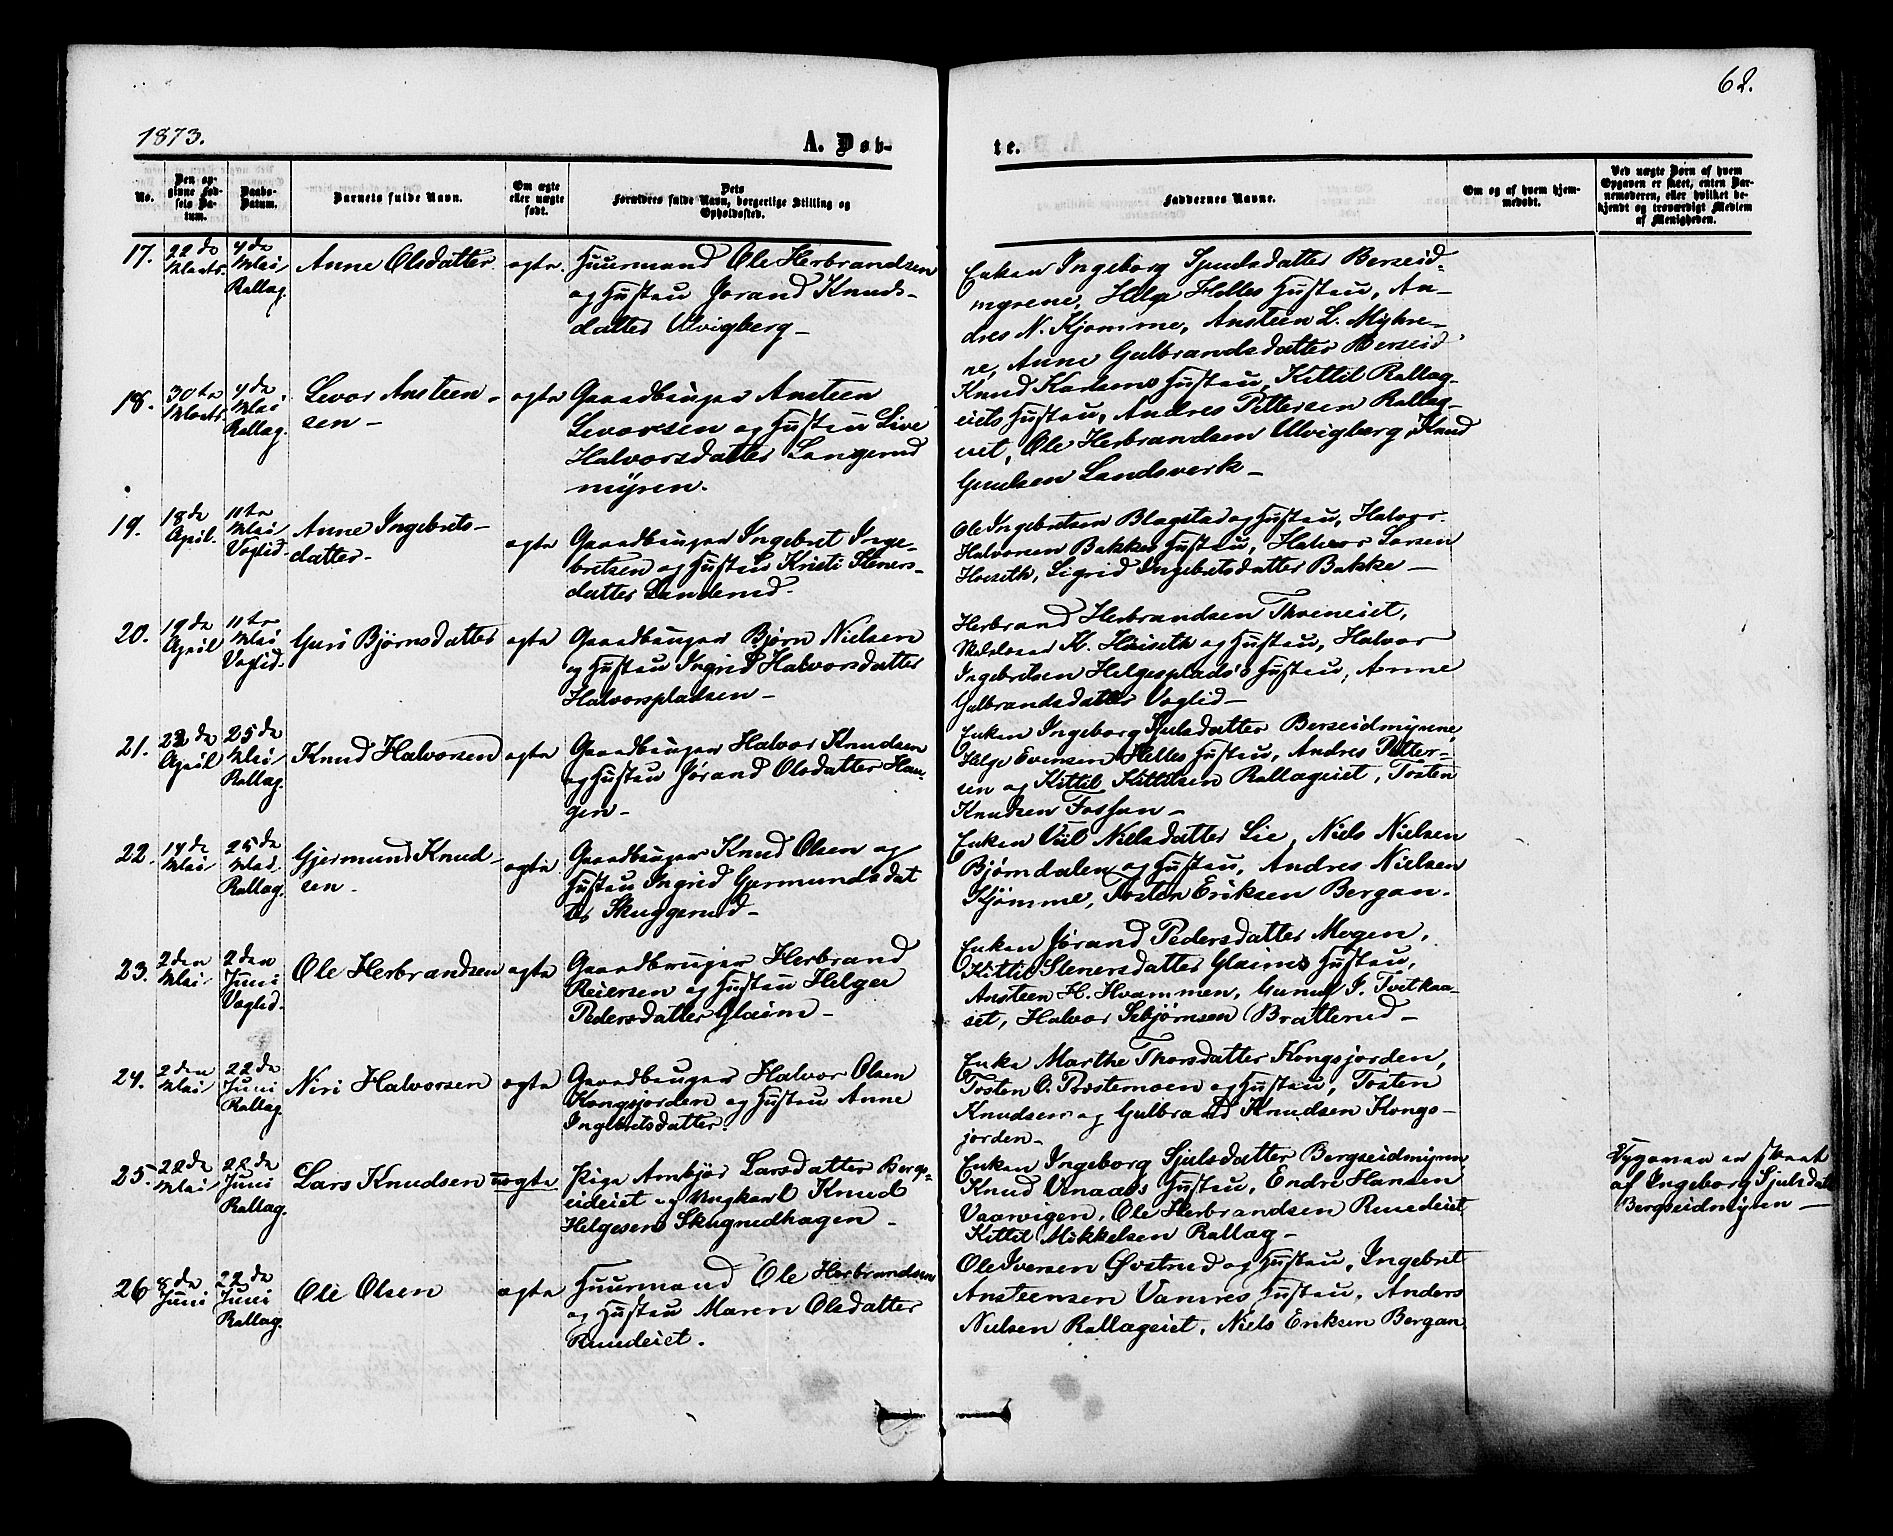 62.
1873.
A. Døb-
te.
No.
Den op-
givne Fød-
sels Da-
tum.
Daabs-
Datum.
Barnets fulde Navn.
Om ægte
eller uægte
født.
Dets
Forældres fulde Navn, borgerlige Stilling og
Opholdssted.
Faddernes Navne.
Om og af hvem hjem-
medøbt.
Ved uægte Børn af hvem
Opgaven er skeet, enten Bar-
nemoderen, eller hvilket be-
kjendt og troværdigt Medlem
af Menigheden.
17.
22de
Marts.
4de
Mai
Rollag.
Anne Olsdatter
ægte
Huusmand Ole Herbrandsen
og Hustru Jørand Knuds-
datter Ulvigberg –
Enken Ingeborg Sjulsdatter Berseid-
myrene, Helge Helles Hustru, An-
dres N. Kjømme, Ansteen L. Myhre-
ne, Anne Gulbrandsdatter Berseid
18.
30te
Marts
4de
Mai
Rollag.
Levor Ansteen-
sen –
ægte
Gaardbruger Ansteen
Levorsen og Hustru Live
Halvorsdatter Langerud
myren.
Knud Karlsens Hustru, Kittil Rollag-
eiets Hustru, Andres Pettersen Rollag-
eiet, Ole Herbrandsen Ulvigberg, Knud
Gundsen Landsverk –
19.
18de
April.
11te
Mai
Veglid.
Anne Ingebrets-
datter –
ægte
Gaardbruger Ingebret Inge-
britsen og Hustru Kristi Steners-
datter Landerud.
Ole Ingebretsen Blagstad og Hustru, Halvor
Halvorsen Bakkes Hustru, Halvor Larsen
Hoseth, Sigrid Ingebretsdatter Bakke –
20.
19de
April
11te
Mai
Veglid.
Guri Bjørnsdatter
ægte
Gaardbruger Bjørn Nielsen
og Hustru Ingrid Halvorsdatter
Halvorspladsen –
Herbrand Herbrandsen Thveneiet,
K. Høiseth og Hustru, Halvor
Ingebretsen Helgesplads's Hustru, Anne
Gulbrandsdatter Veglid –
21.
23de
April
25de
Mai
Rollag.
Knud Halvorsen
ægte
Gaardbruger Halvor Knudsen
og Hustru Jørand Olsdatter Hau-
gen –
Enken Ingeborg Sjulsdatter Berseidmyrene,
Helge Evensen Helles Hustru, Andres Petter-
sen og Kittil Kittilsen Rollageiet, Tosten
Knudsen Fosshan –
22.
14de
Mai
25de
Mai
Rollag.
Gjermund Knud-
sen –
ægte
Gaardbruger Knud Olsen og
Hustru Ingrid Gjermundsdat
ter Skuggerud –
Enken Viil Nielsdatter Lie, Niels Nielsen
Bjørndalen og Hustru, Andres Nielsen
Kjømme, Tosten Eriksen Bergan.
23.
2den
Mai
2den
Juni
Veglid.
Ole Herbrandsen
ægte
Gaardbruger Herbrand
Reiersen og Hustru Helger
Pedersdatter Glaim –
Enken Jørand Pedersdatter Mogen,
Kittil Stenersdatter Glaims Hustru,
Ansteen H. Hvammen, Gunul P. Tveitkaa-
set, Halvor Sebjørnsen Bratterud –
24.
2den
Mai
22de
Juni
Rollag
Niri Halvorsen
ægte
Gaardbruger Halvor Olsen
Kongsjorden og Hustru Anne
Ingebretsdatter.
Enke Marthe Thorsdatter Kongsjorden,
Tosten O. Prestemoen og Hustru, Tosten
Knudsen og Gulbrand Knudsen Kongs-
jorden –
25.
22de
Mai
22de
Juni
Rollag.
Lars Knudsen
uægte
Pige Arnbjør Larsdatter Bergs-
eideiet og Ungkarl Knud
Helgesen Skugrudhagen –
Enken Ingeborg Sjulsdatter Bergseidmyren,
Knud Vinaas Hustru, Endre Hansen
Vaarvigen, Ole Herbrandsen Rundeiet
Kittil Mikkelsen Rollag –
Opgaven er skeet
af Ingeborg Sjulsdat
Bergseidmyren –
26
8de
Juni
22de
Juni
Rollag.
Ole Olsen
ægte
Huusmand Ole Herbrandsen
og Hustru Maren Olsdatter
Rundeiet.
Ole Iversen Øvstrud og Hustru, Ingebret
Ansteensen Vamres Hustru, Anders
Nielsen Rollageiet, Niels Eriksen Bergan.